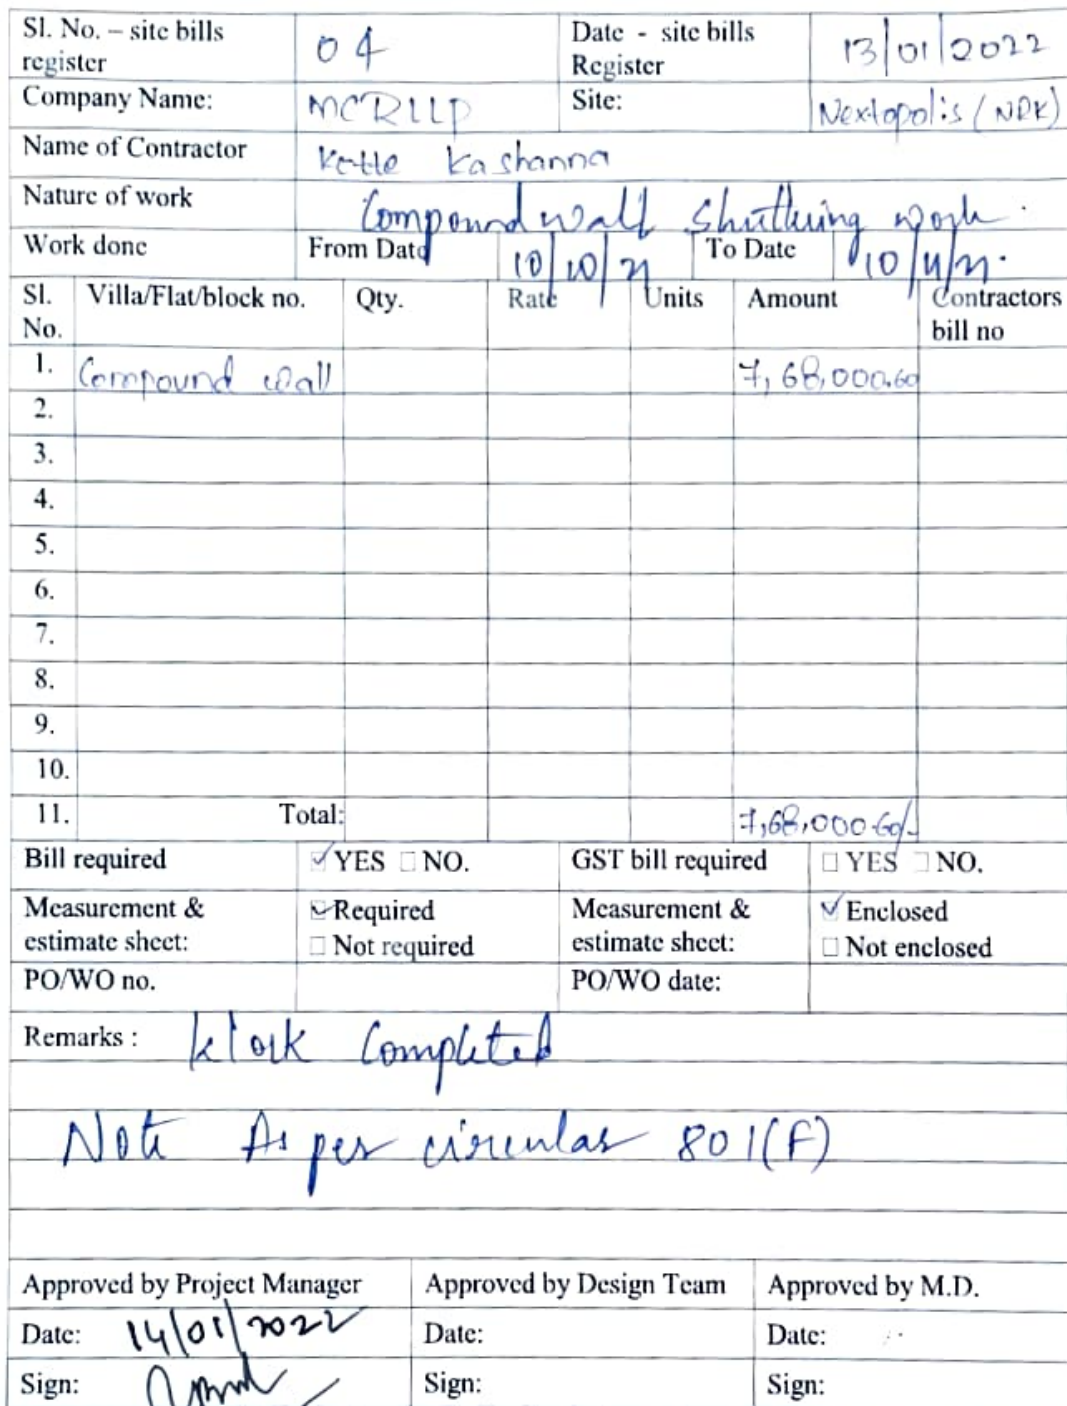 Sl. No. – site bills register 04 Date - site bills Register 13/01/2022
Company Name: MCRLLP Site: Nextopolis (NRK)
Name of Contractor Kette Kashanna
Nature of work Compound wall Shuttering work.
Work done From Date 10/10/21 To Date 10/11/21.
Sl. No. Villa/Flat/block no. Qty. Rate Units Amount Contractors bill no
1. Compound wall 7,68,000.60
2.
3.
4.
5.
6.
7.
8.
9.
10.
11. Total: 7,68,000.60/-
Bill required ☑ YES ☐ NO. GST bill required ☐ YES ☐ NO.
Measurement & estimate sheet: ☑ Required ☐ Not required Measurement & estimate sheet: ☑ Enclosed ☐ Not enclosed
PO/WO no. PO/WO date:
Remarks : Work Completed
Note As per circular 801(F)
Approved by Project Manager Approved by Design Team Approved by M.D.
Date: 14/01/2022 Date: Date:
Sign: Sign: Sign: